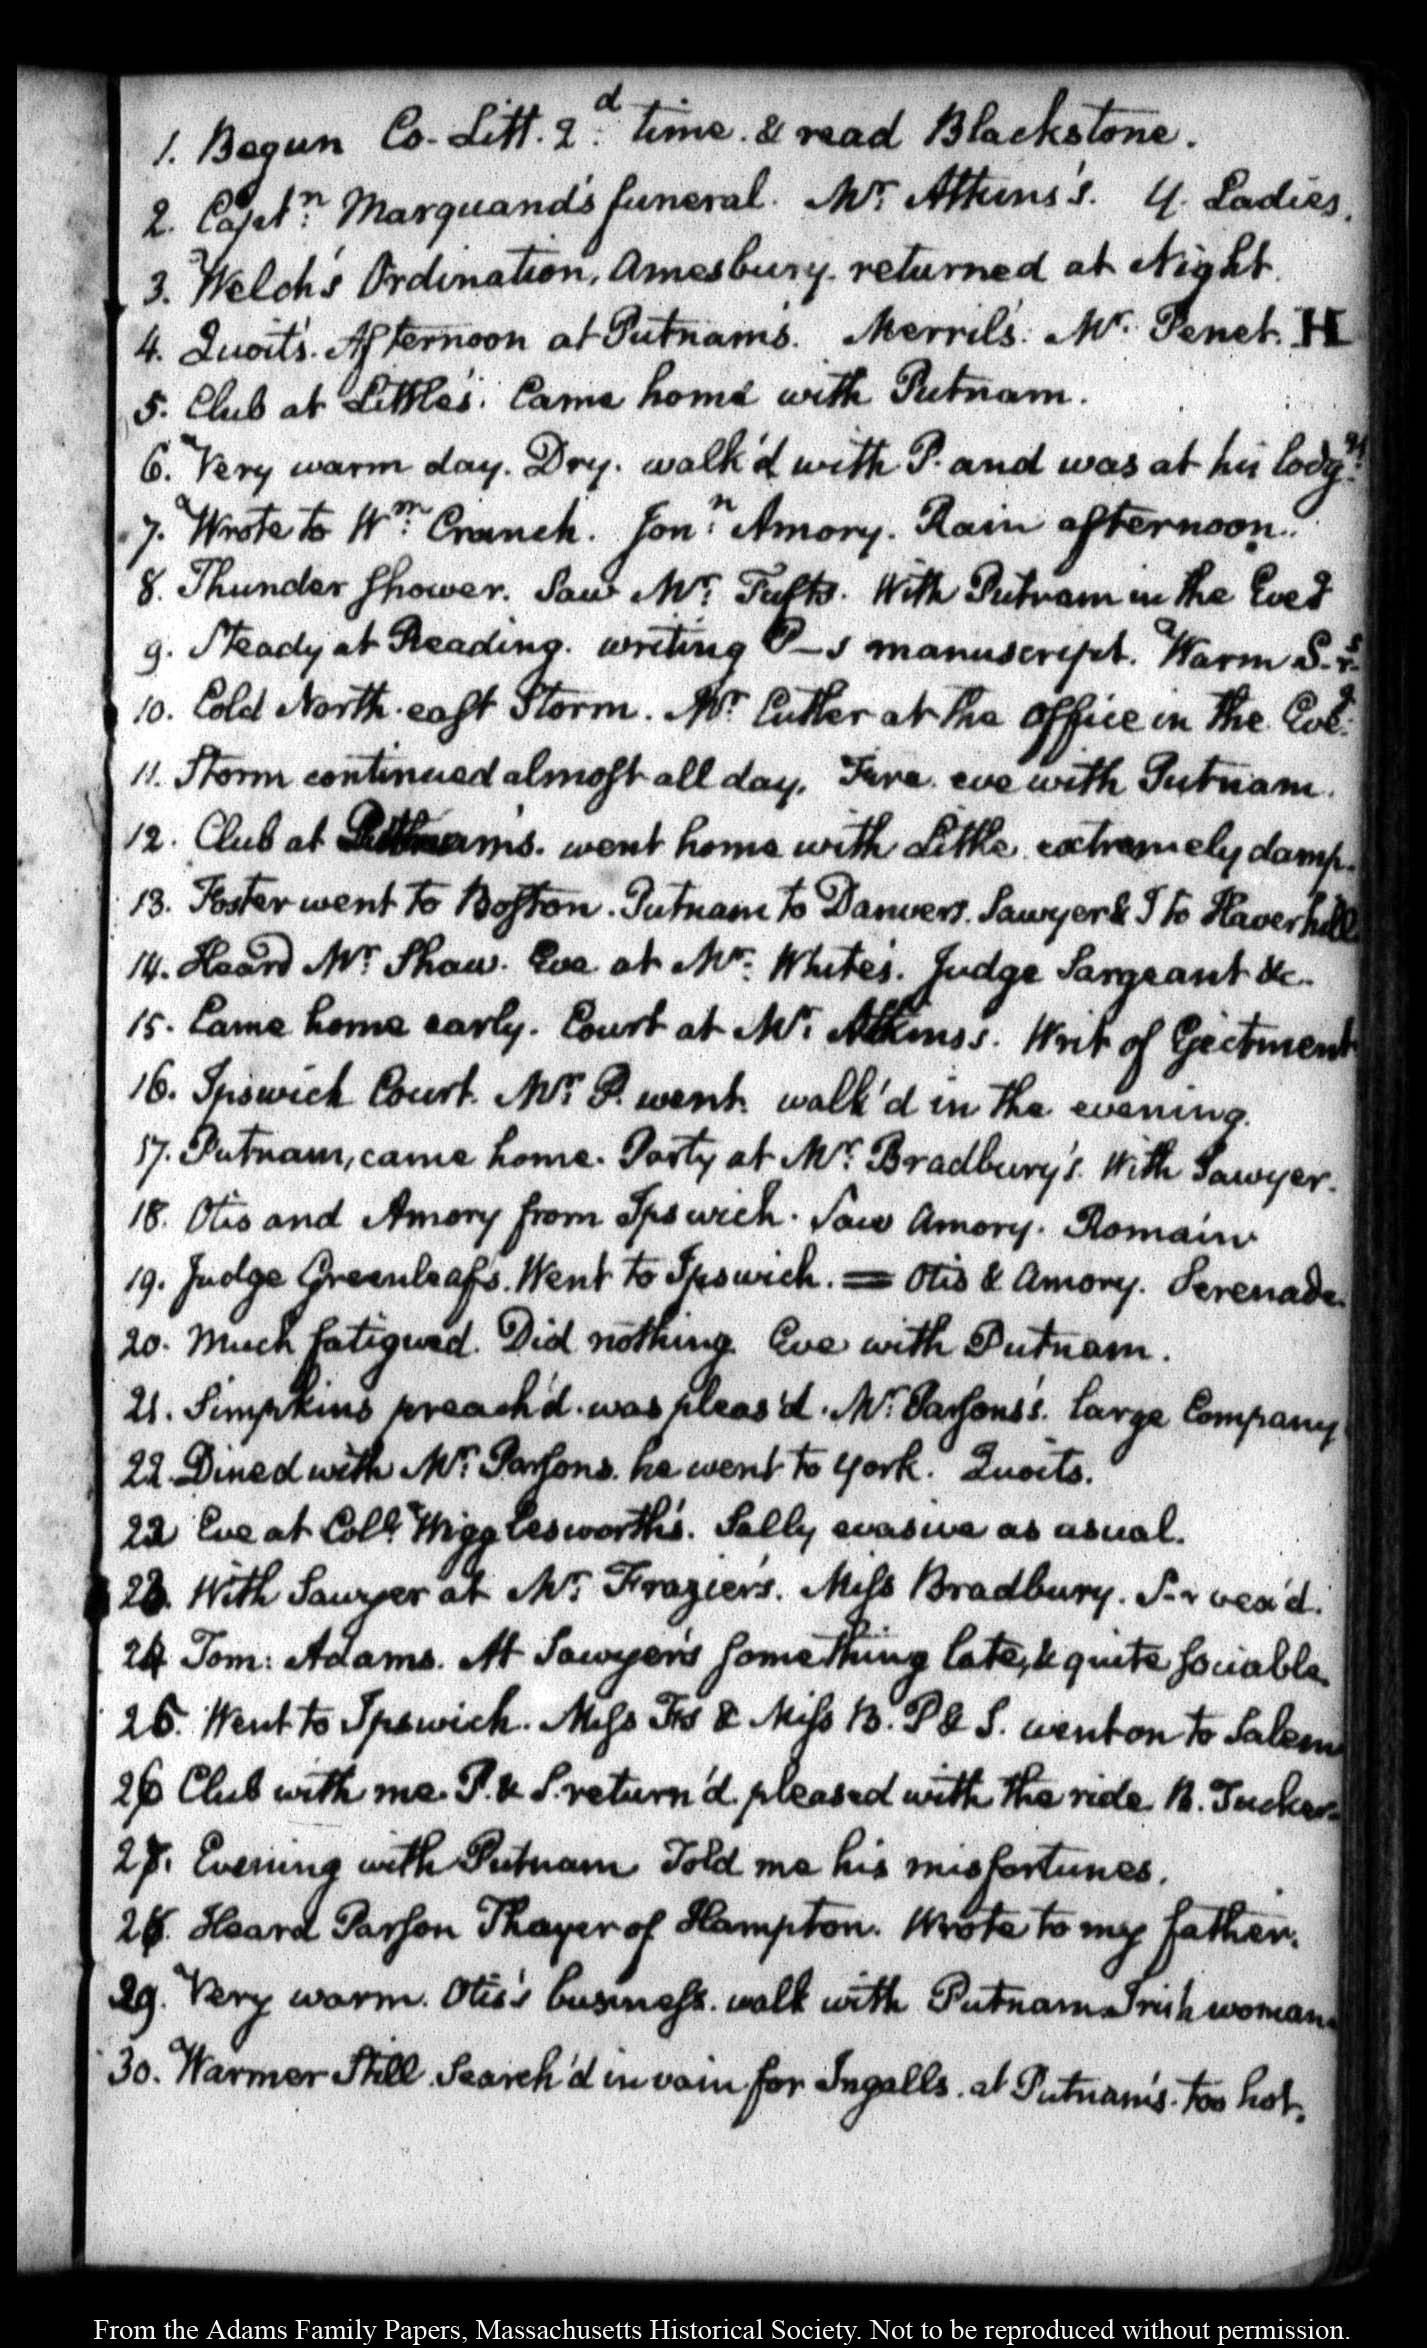 1. Begun Co-Litt. 2d time. & read Blackstone.
2. Captn: Marquand's funeral. Mr: Atkins's. Y. Ladies.
3. Welch's Ordination, Amesbury. returned at Night.
4. Quoits. Afternoon at Putnam's. Merril's. Mr: Penet. H
5. Club at Little's. Came home with Putnam.
6. Very warm day. Dry. walk'd with P. and was at his lodgs:
7. Wrote to Wm: Cranch. Jonn: Amory. Rain afternoon.
8. Thunder shower. Saw Mr: Tufts. With Putnam in the Eveg
9. Steady at Reading. writing P—s manuscript. Warm
10. Cold North-east Storm. Mr: Cutler at the office in the Eve:
11. Storm continued almost all day. Fire. eve with Putnam.
12. Club at Putnam's. went home with Little. extremely damp.
13. Foster went to Boston. Putnam to Danvers. Sawyer & I to Haverhill
14. Heard Mr: Shaw. Eve at Mr: White's. Judge Sargeant &c.
15. Came home early. Court at Mr: Atkins's. Writ of Ejectment
16. Ipswich Court. Mr: P. went. walk'd in the evening.
17. Putnam, came home. Party at Mr: Bradbury's. With Sawyer.
18. Otis and Amory from Ipswich. Saw Amory. Romain
19. Judge Greenleaf's. Went to Ipswich. = Otis & Amory. Serenade.
20. Much fatigued. Did nothing. Eve with Putnam.
21. Simpkins preach'd. was pleas'd. Mr: Parsons's. large Company
22. Dined with Mr: Parsons. he went to York. Quoits.
22 Eve at Coll: Wigglesworth's. Sally evasive as usual.
23. With Sawyer at Mr: Frazier's. Miss Bradbury. S-r vex'd.
24 Tom: Adams. At Sawyer's something late, & quite sociable.
25. Went to Ipswich. Miss Frs & Miss B. P & S. went on to Salem
26 Club with me. P. & S. return'd. pleased with the ride. B. Tucker.
27. Evening with Putnam. Told me his misfortunes.
28. Heard Parson Thayer of Hampton. Wrote to my father.
29. Very warm. Otis's business. walk with Putnam. Irish woman.
30. Warmer still. Search'd in vain for Ingalls. at Putnam's. too hot.
From the Adams Family Papers, Massachusetts Historical Society. Not to be reproduced without permission.